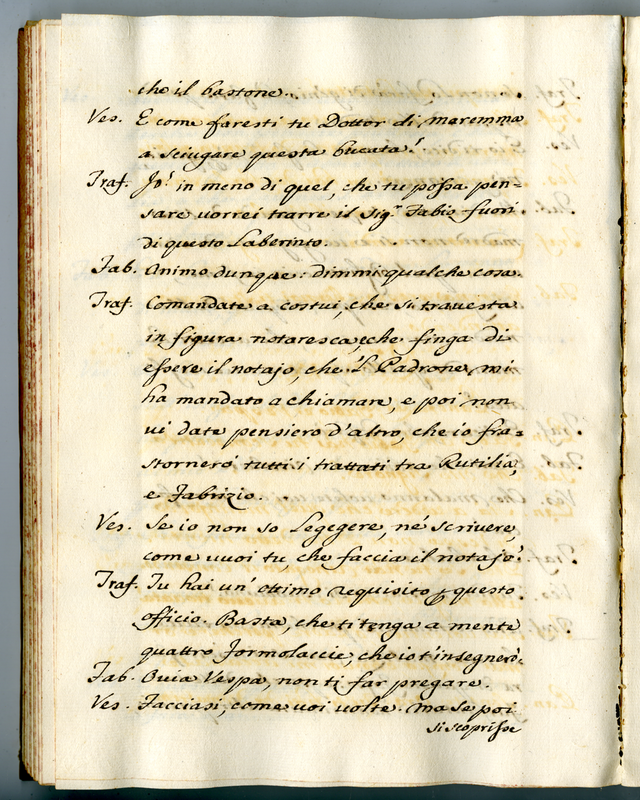 che il bastone.
Ves. E come faresti tu Dottor di maremma
a sciugare questa bucata?
Traf. Io! in meno di quel, che tu possa pen=
sare vorrei trarre il Sig.r Fabio fuori
di questo Laberinto.
Fab. Animo dunque: dimmi qualche cosa.
Traf. Comandate a costui, che si travesta
in figura notaresca, e che finga di
essere il notajo, che 'l Padrone mi
ha mandato a chiamare, e poi non
vi date pensiero d'altro, che io fra=
stornerò tutti i trattati tra Rutilia,
e Fabrizio.
Ves. Se io non so Legegere, né scrivere,
come vuoi tu, che faccia il notajo?
Traf. Tu hai un' ottimo requisito p questo
officio. Basta, che ti tenga a mente
quattro formolaccie, che io t'insegnerò.
Fab. Ovia Vespa, non ti far pregare.
Ves. Facciasi, come voi volte. ma se poi
si scoprisse